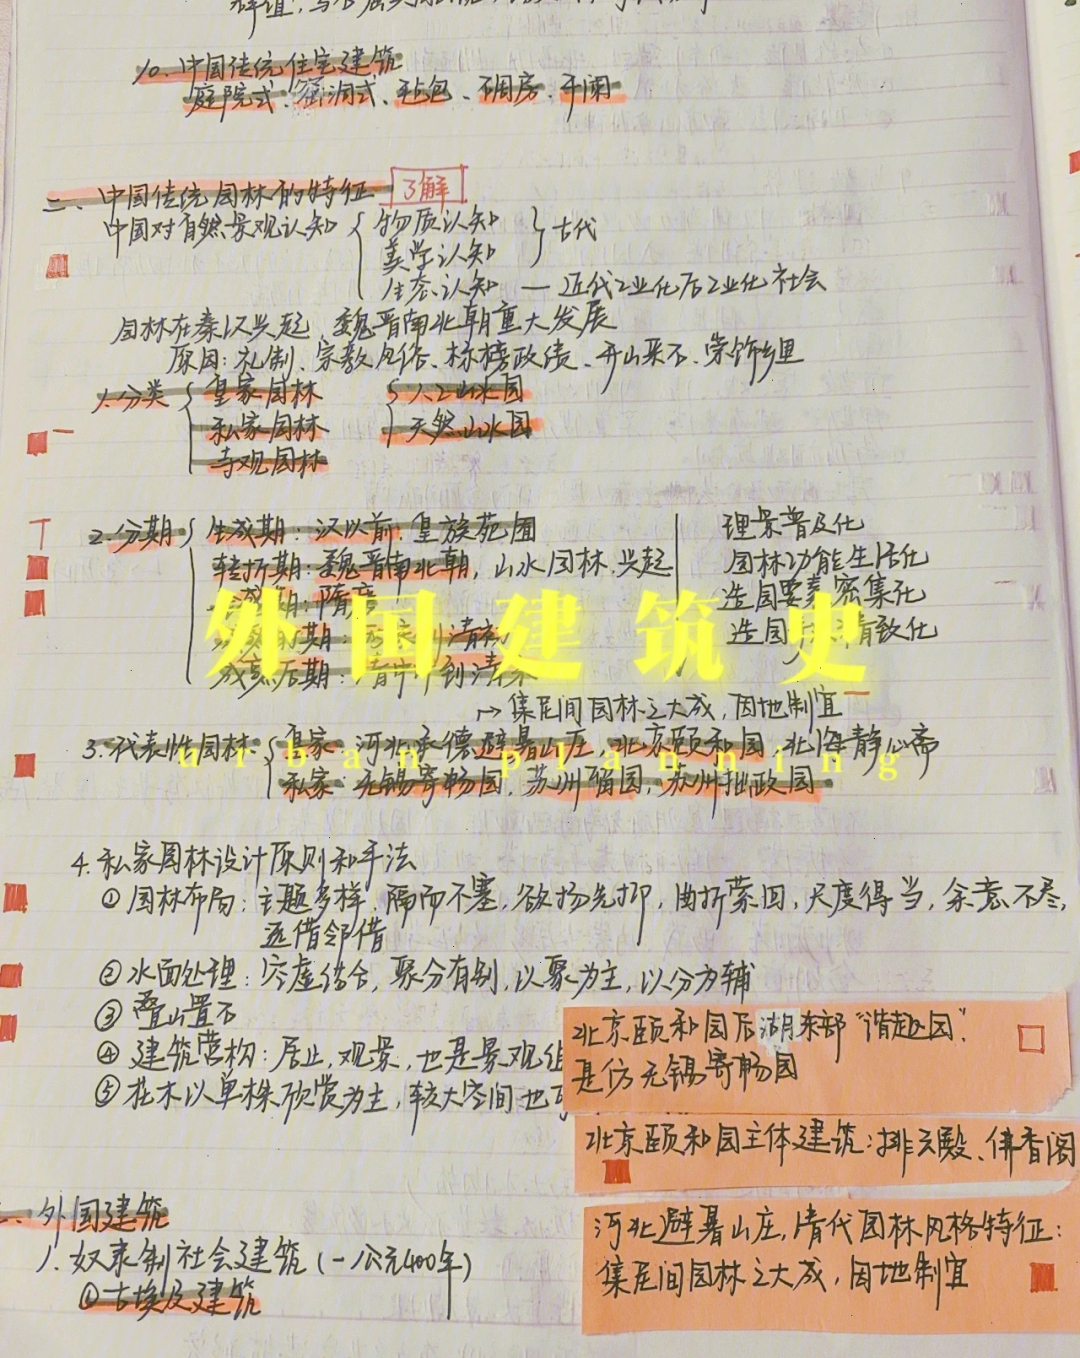 10. 中国传统住宅建筑
庭院式、窑洞式、毡包、碉房、干阑
二、中国传统园林的特征 了解
中国对自然景观认知 物质认知 古代
美学认知
生态认知 — 近代工业化后工业化社会
园林在秦汉兴起,魏晋南北朝重大发展
原因:礼制、宗教风俗、标榜政绩、开山采石、荣饰乡里
1. 分类 皇家园林 人工山水园
私家园林 天然山水园
寺观园林
2. 分期 生成期:汉以前:皇族苑囿 理景普及化
转折期:魏晋南北朝,山水园林兴起 园林功能生活化
期:隋唐 造园要素密集化
期: 到清初 造园 精致化
成熟后期:清中叶到清末
外国建筑史
→ 集民间园林之大成,因地制宜
3. 代表性园林 皇家 河北承德避暑山庄,北京颐和园,北海静心斋
urban planning
私家:无锡寄畅园,苏州留园,苏州拙政园
4. 私家园林设计原则和手法
① 园林布局:主题多样,隔而不塞,欲扬先抑,曲折萦回,尺度得当,余意不尽,
远借邻借
② 水面处理: 虚结合,聚分有别,以聚为主,以分为辅
③ 叠山置石
④ 建筑营构:居止,观景,也是景观组
⑤ 花木以单株欣赏为主,较大空间也
北京颐和园后湖东部“谐趣园”
是仿无锡寄畅园
北京颐和园主体建筑:排云殿、佛香阁
河北避暑山庄,清代园林风格特征:
集民间园林之大成,因地制宜
一、外国建筑
1. 奴隶制社会建筑(—公元400年)
① 古埃及建筑